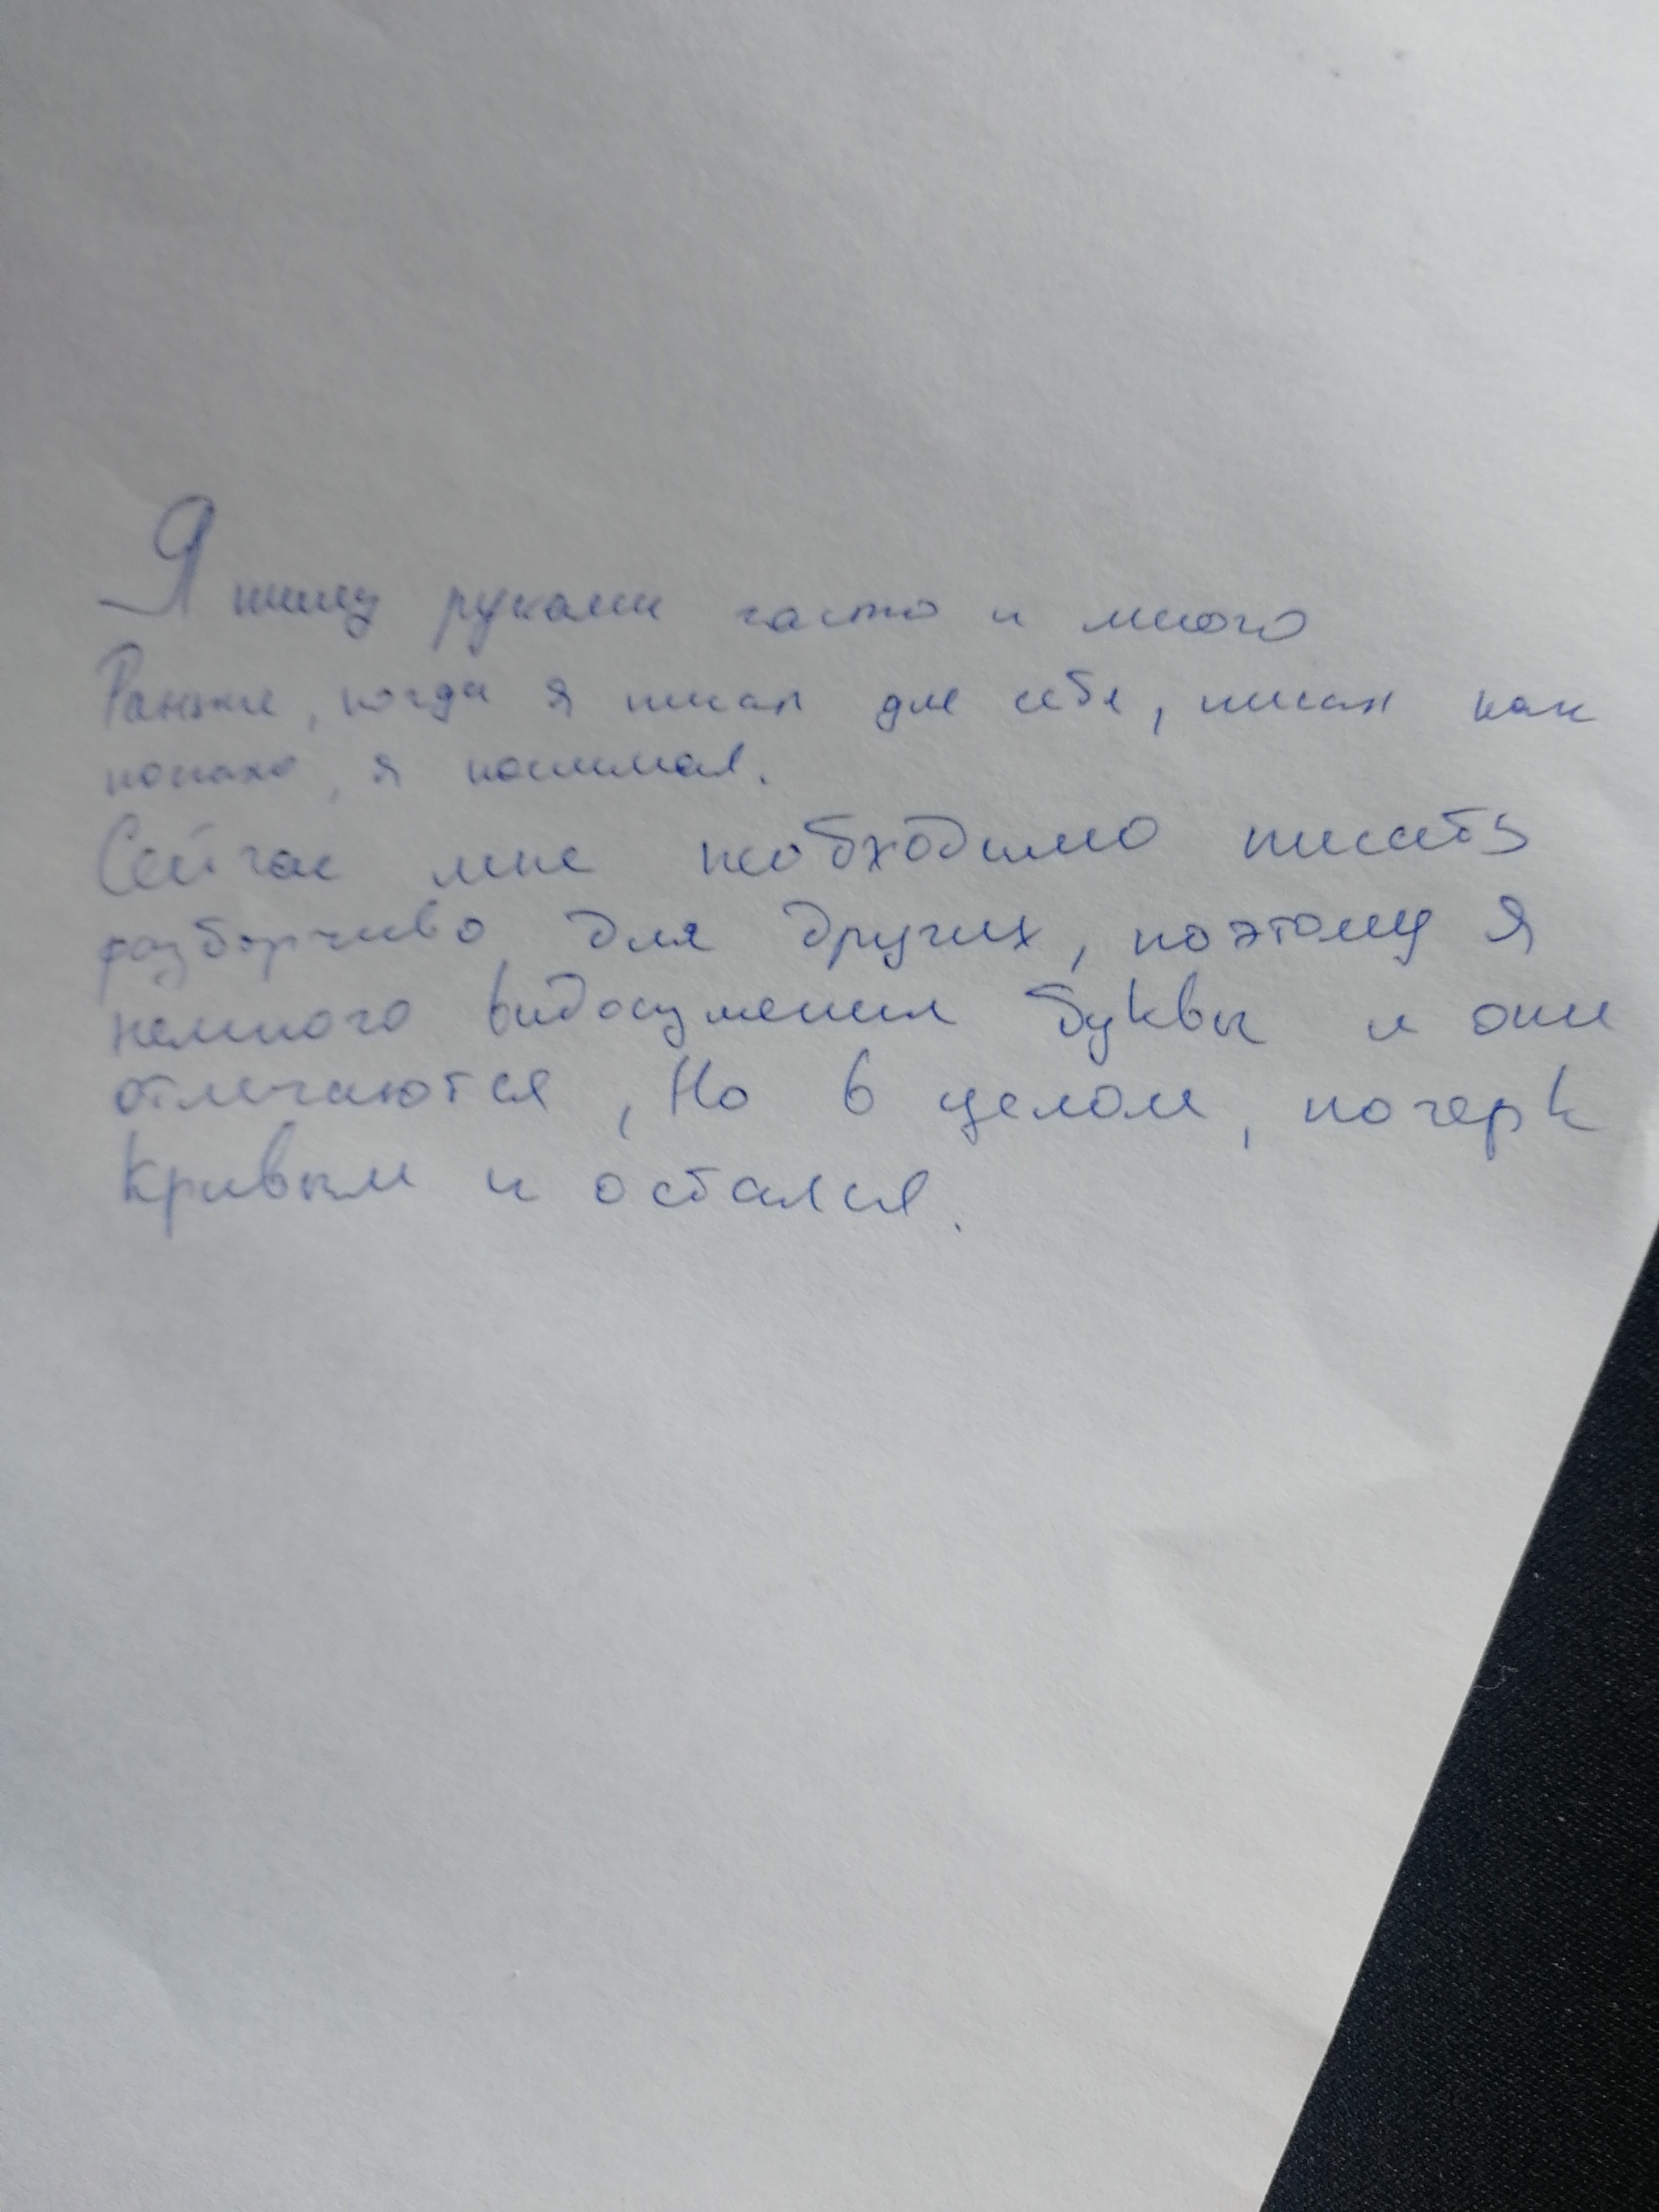 Я пишу руками часто и много
Раньше, когда я писал для себя, писал как
попало, я понимал.
Сейчас мне необходимо писать
разборчиво для других, поэтому я
немного видоизменил буквы и они
отличаются, Но в целом, почерк
кривым и остался.